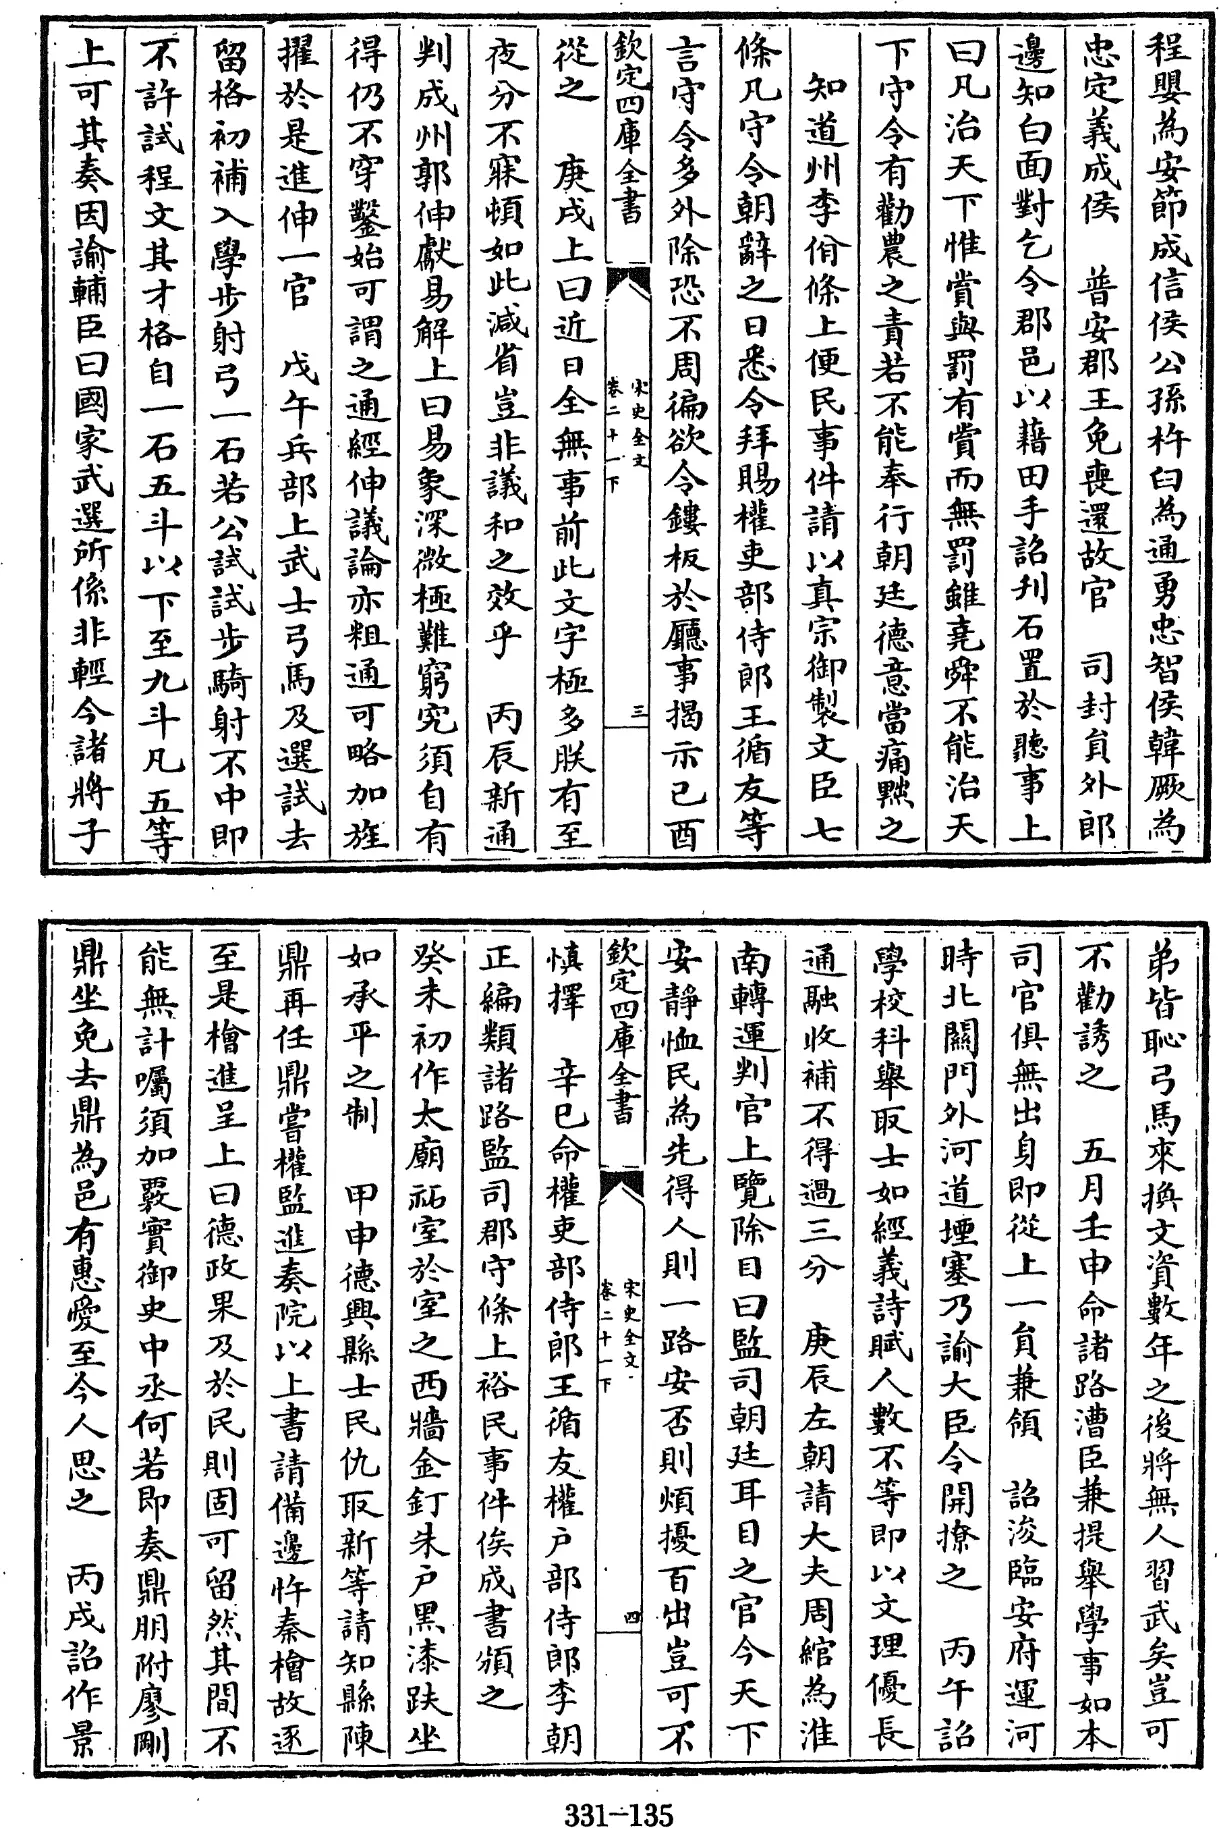 程嬰為安節成信侯公孫杵臼為通勇忠智侯韓厥為
忠定義成侯　普安郡王免喪還故官　司封員外郎
邊知白面對乞令郡邑以藉田手詔刋石置於聽事上
曰凡治天下惟賞與罰有賞而無罰雖堯舜不能治天
下守令有勸農之責若不能奉行朝廷德意當痛黜之
知道州李佾條上便民事件請以真宗御製文臣七
條凡守令朝辭之日悉令拜賜權吏部侍郎王循友等
言守令多外除恐不周徧欲令鏤板於廳事揭示己酉
欽定四庫全書
宋史全文
卷二十一下
三
從之　庚戌上曰近日全無事前此文字極多朕有至
夜分不寐頓如此減省豈非議和之效乎　丙辰新通
判成州郭伸獻易解上曰易象深微極難窮究須自有
得仍不穿鑿始可謂之通經伸議論亦粗通可略加旌
擢於是進伸一官　戊午兵部上武士弓馬及選試去
留格初補入學步射弓一石若公試試步騎射不中即
不許試程文其才格自一石五斗以下至九斗凡五等
上可其奏因諭輔臣曰國家武選所係非輕今諸將子
弟皆恥弓馬來換文資數年之後將無人習武矣豈可
不勸誘之　五月壬申命諸路漕臣兼提舉學事如本
司官俱無出身即從上一員兼領　詔浚臨安府運河
時北關門外河道堙塞乃諭大臣令開撩之　丙午詔
學校科舉取士如經義詩賦人數不等即以文理優長
通融收補不得過三分　庚辰左朝請大夫周綰為淮
南轉運判官上覽除目曰監司朝廷耳目之官今天下
安靜恤民為先得人則一路安否則煩擾百出豈可不
欽定四庫全書
宋史全文
卷二十一下
四
慎擇　辛巳命權吏部侍郎王循友權户部侍郎李朝
正編類諸路監司郡守條上裕民事件俟成書頒之
癸未初作太廟祏室於室之西牆金釘朱户黑漆趺坐
如承平之制　甲申德興縣士民仇取新等請知縣陳
鼎再任鼎嘗權監進奏院以上書請備邊忤秦檜故逐
至是檜進呈上曰德政果及於民則固可留然其間不
能無計囑須加覈實御史中丞何若即奏鼎朋附廖剛
鼎坐免去鼎為邑有惠愛至今人思之　丙戌詔作景
331-135